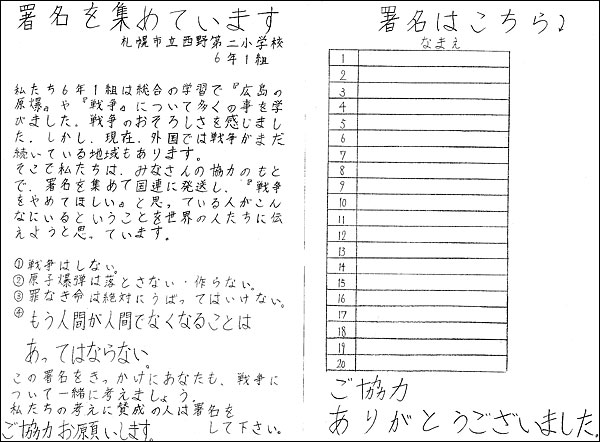 署名を集めています
札幌市立西野第二小学校
6年1組
私たち6年1組は総合の学習で『広島の
原爆』や『戦争』について多くの事を学
びました。戦争のおそろしさを感じまし
た。しかし、現在、外国では戦争がまだ
続いている地域もあります。
そこで私たちは、みなさんの協力のもと
で、署名を集めて国連に発送し、『戦争
をやめてほしい』と思っている人がこん
なにいるということを世界の人たちに伝
えようと思っています。
①戦争はしない。
②原子爆弾は落とさない・作らない。
③罪なき命は絶対にうばってはいけない。
④もう人間が人間でなくなることは
あってはならない。
この署名をきっかけにあなたも、戦争に
ついて一緒に考えましょう。
私たちの考えに賛成の人は署名を
ご協力お願いします。 して下さい。
署名はこちら♪
なまえ
1
2
3
4
5
6
7
8
9
10
11
12
13
14
15
16
17
18
19
20
ご協力
ありがとうございました。